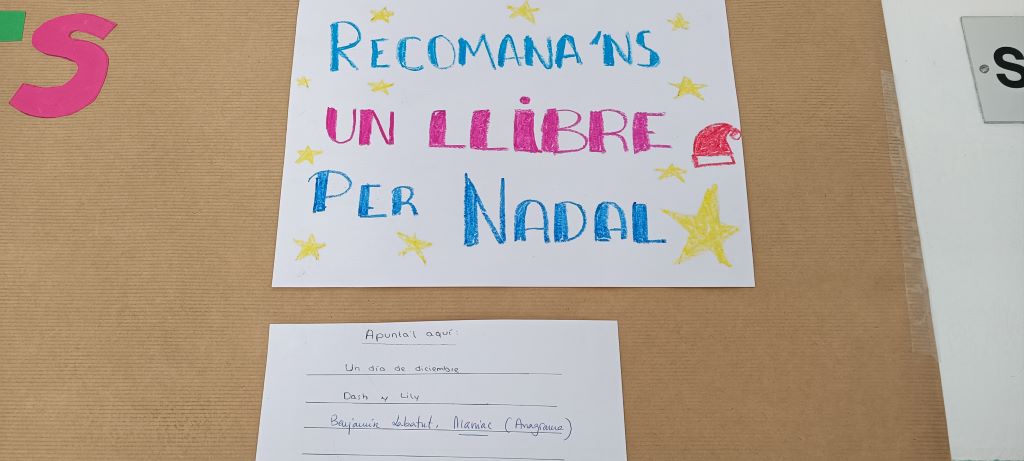 S
RECOMANA'NS
UN LLIBRE
PER NADAL
S
Apunta'l aquí:
Un día de diciembre
Dash y Lily
Benjamin Labatut, Maniac (Anagrama)